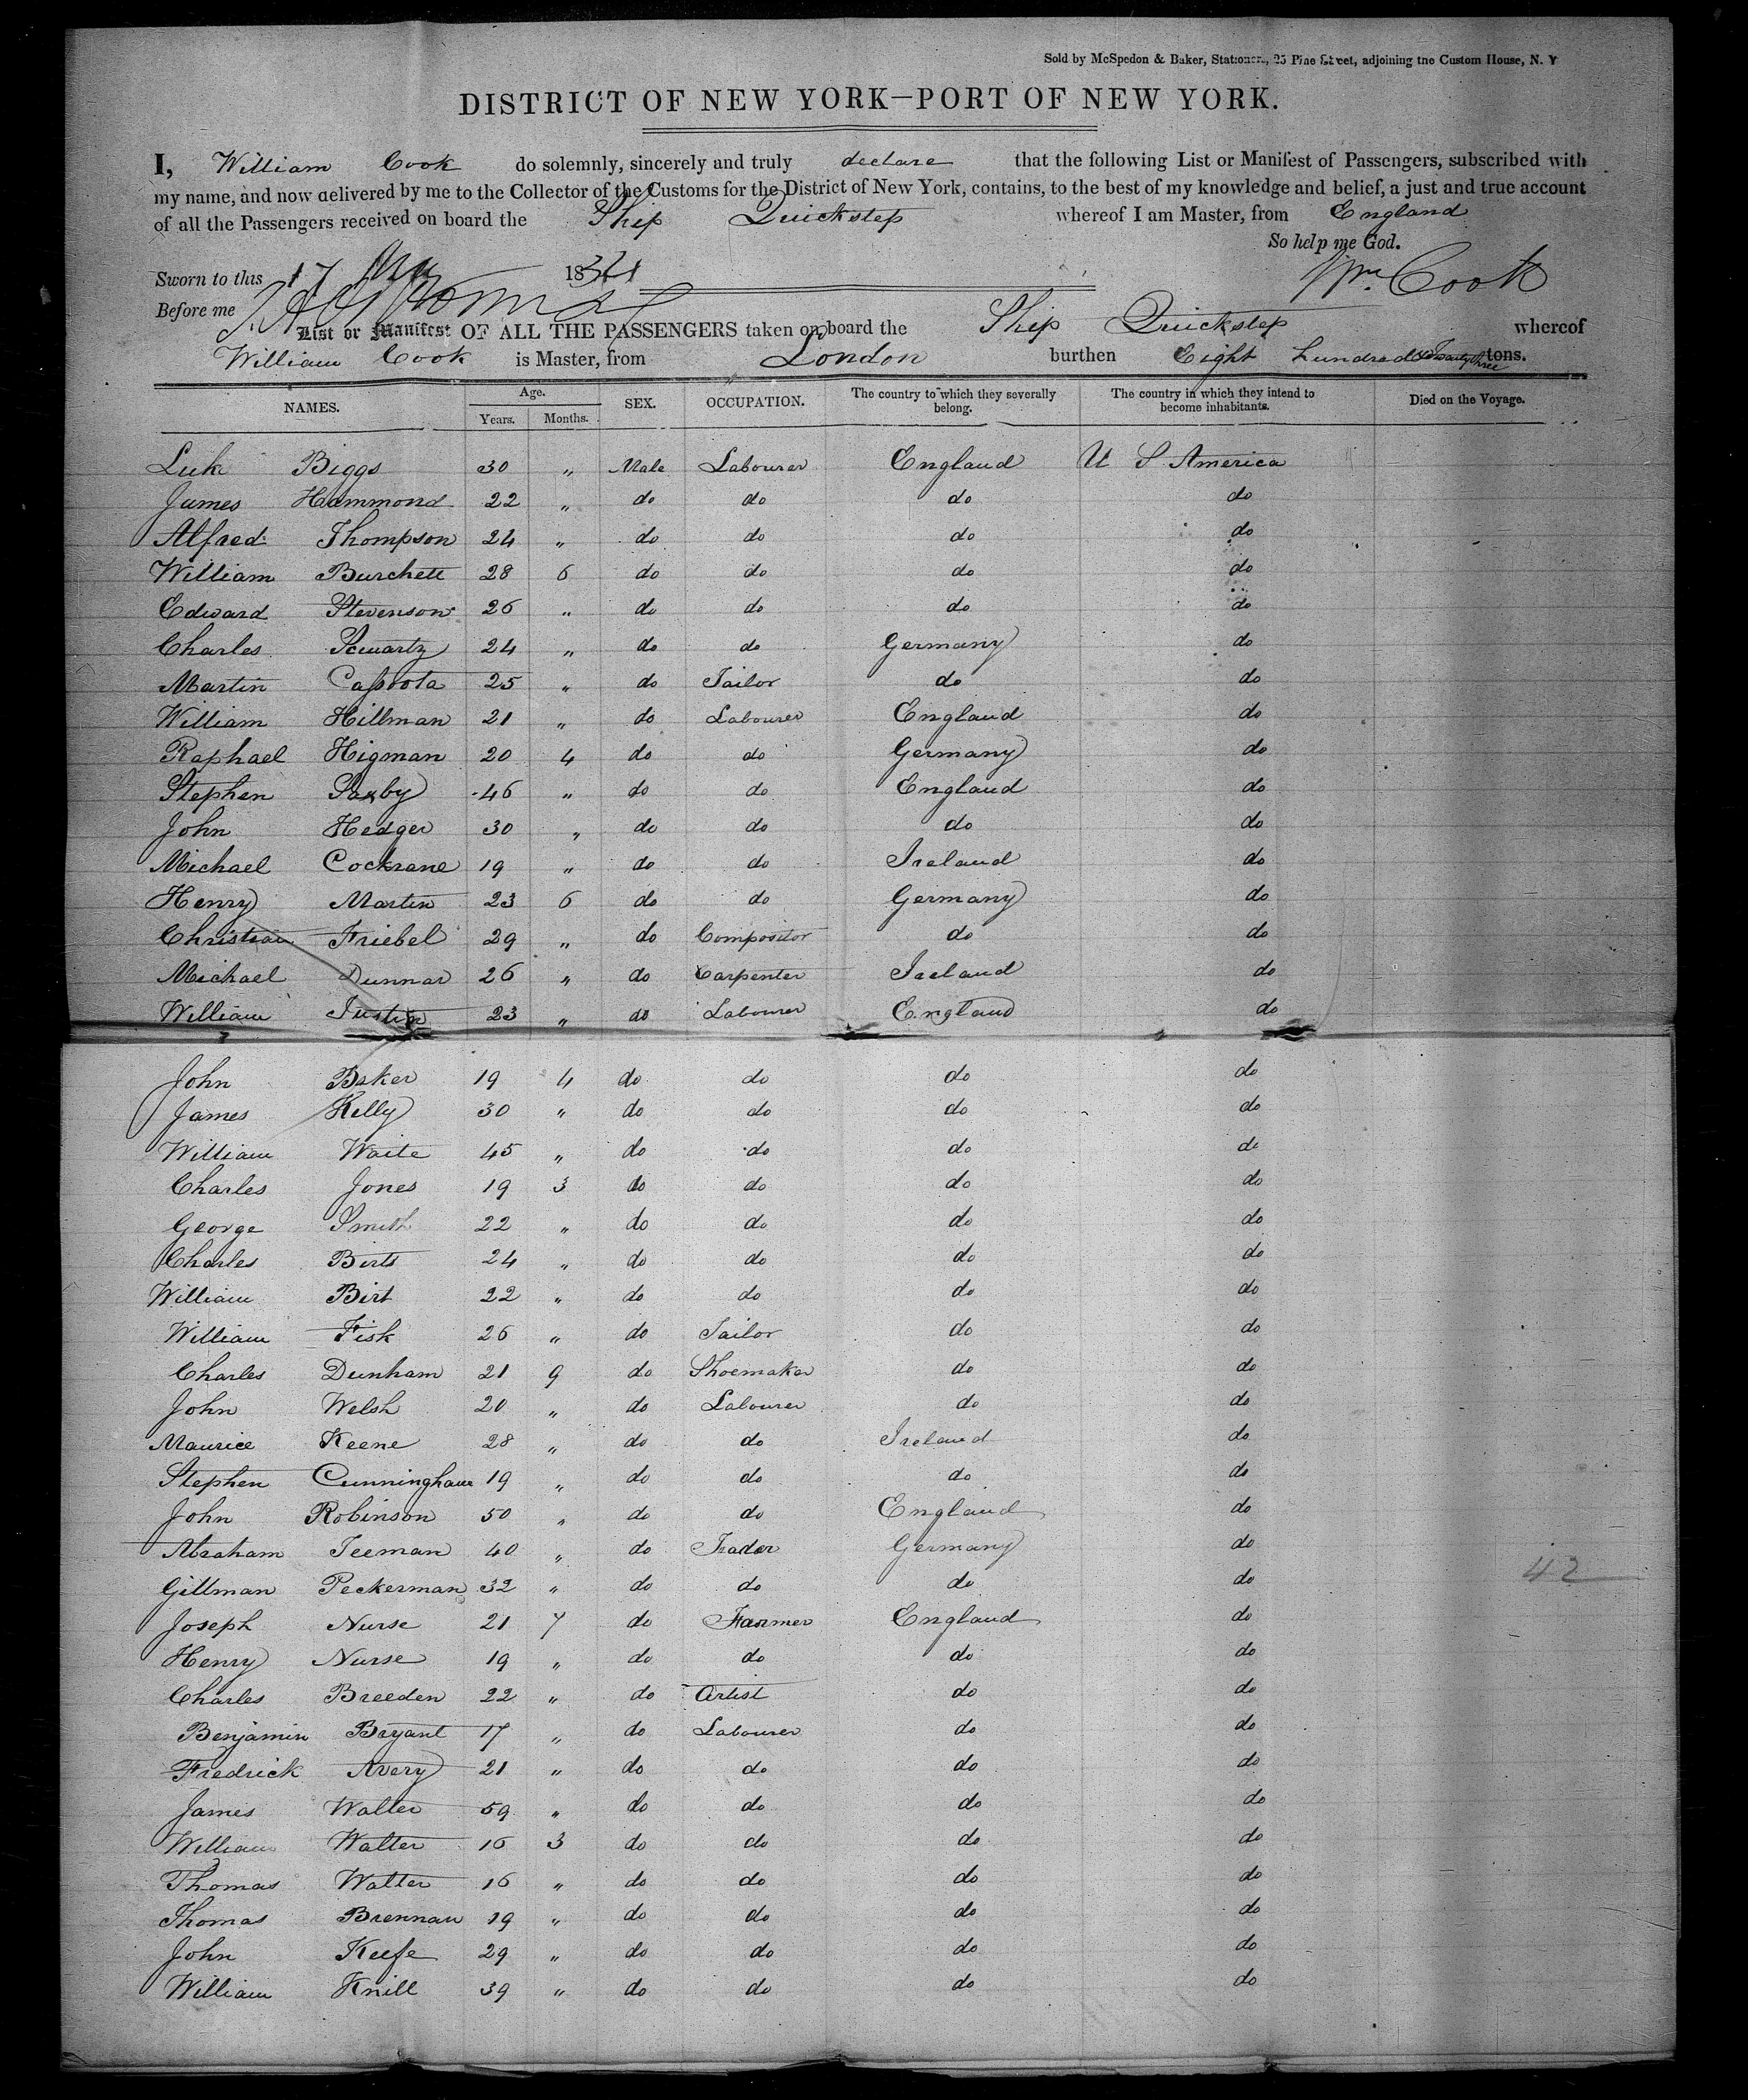 Sold by McSpedon & Baker, Stationers, 25 Pine Street, adjoining the Custom House, N. Y
DISTRICT OF NEW YORK—PORT OF NEW YORK.
I, William Cook do solemnly, sincerely and truly declare that the following List or Manifest of Passengers, subscribed with
my name, and now delivered by me to the Collector of the Customs for the District of New York, contains, to the best of my knowledge and belief, a just and true account
of all the Passengers received on board the Ship Quickstep whereof I am Master, from England
So help me God.
Sworn to this 17 18
Wm. Cook
Before me
List or Manifest OF ALL THE PASSENGERS taken on board the Ship Quickstep whereof
William Cook is Master, from London burthen Eight hundred & Twenty three tons.
NAMES. Age. Years. Months. SEX. OCCUPATION. The country to which they severally belong. The country in which they intend to become inhabitants. Died on the Voyage.
Luke Biggs 30 " Male Labourer England U S America
James Hammond 22 " do do do do
Alfred Thompson 24 " do do do do
William Burchett 28 6 do do do do
Edward Stevenson 26 " do do do do
Charles Scwartz 24 " do do Germany do
Martin 25 " do Tailor do do
William Hillman 21 " do Labourer England do
Raphael Higman 20 4 do do Germany do
Stephen Saxby 46 " do do England do
John Hedger 30 " do do do do
Michael Cockrane 19 " do do Ireland do
Henry Martin 23 6 do do Germany do
Christian Friebel 29 " do Compositor do do
Michael Dunnar 26 " do Carpenter Ireland do
William Justin 23 " do Labourer England do
John Baker 19 4 do do do do
James Kelly 30 " do do do do
William Waite 45 " do do do do
Charles Jones 19 3 do do do do
George Smith 22 " do do do do
Charles Birts 24 " do do do do
William Birt 22 " do do do do
William Fisk 26 " do Tailor do do
Charles Dunham 21 9 do Shoemaker do do
John Welsh 20 " do Labourer do do
Maurice Keene 28 " do do Ireland do
Stephen Cunningham 19 " do do do do
John Robinson 50 " do do England do
Abraham Teeman 40 " do Trader Germany do
Gillman Peckerman 32 " do do do do 42
Joseph Nurse 21 7 do Farmer England do
Henry Nurse 19 " do do do do
Charles Breeden 22 " do Artist do do
Benjamin Bryant 17 " do Labourer do do
Fredrick Avery 21 " do do do do
James Walter 59 " do do do do
William Walter 16 3 do do do do
Thomas Walter 16 " do do do do
Thomas Brennan 19 " do do do do
John Keefe 29 " do do do do
William Knill 39 " do do do do